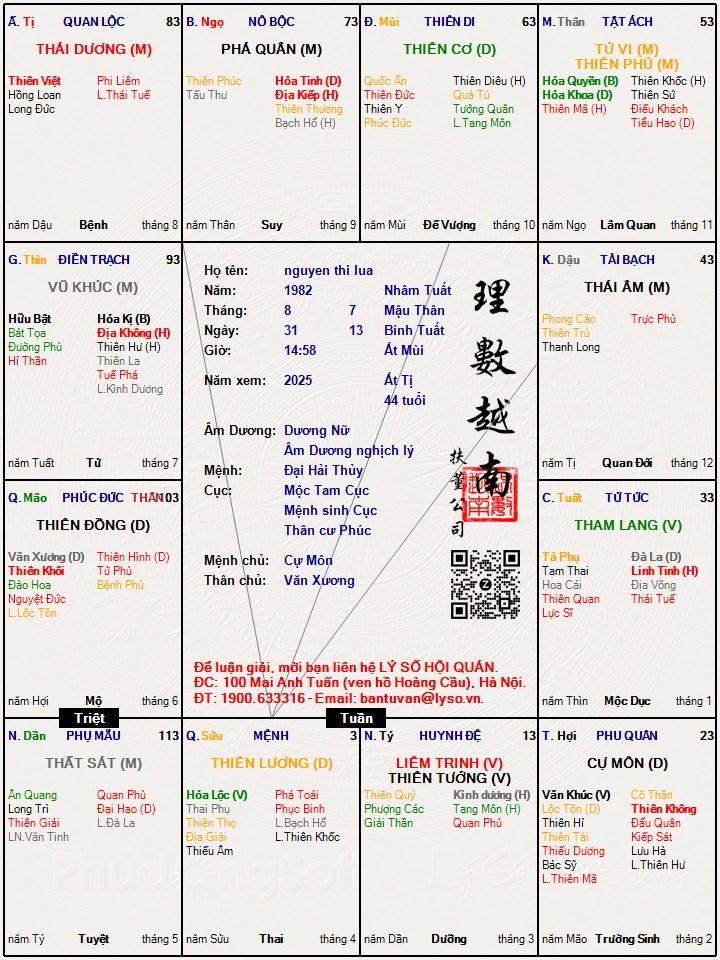 Ă. Tị QUAN LỘC 83
THÁI DƯƠNG (M)
Thiên Việt Phi Liêm
Hồng Loan L.Thái Tuế
Long Đức
năm Dậu Bệnh tháng 8
B. Ngọ NÔ BỘC 73
PHÁ QUÂN (M)
Thiên Phúc Hỏa Tinh (D)
Tấu Thư Địa Kiếp (H)
Thiên Thương
Bạch Hổ (H)
năm Thân Suy tháng 9
Đ. Mùi THIÊN DI 63
THIÊN CƠ (D)
Quốc Ấn Thiên Diêu (H)
Thiên Đức Quả Tú
Thiên Y Tướng Quân
Phúc Đức L.Tang Môn
năm Mùi Đế Vượng tháng 10
M. Thân TẬT ÁCH 53
TỬ VI (M)
THIÊN PHỦ (M)
Hóa Quyền (B) Thiên Khốc (H)
Hóa Khoa (D) Thiên Sứ
Thiên Mã (H) Điếu Khách
Tiểu Hao (D)
năm Ngọ Lâm Quan tháng 11
G. Thìn ĐIỀN TRẠCH 93
VŨ KHÚC (M)
Hữu Bật Hóa Kị (B)
Bát Tọa Địa Không (H)
Đường Phù Thiên Hư (H)
Hỉ Thần Thiên La
Tuế Phá
L.Kình Dương
năm Tuất Tử tháng 7
Họ tên: nguyen thi lua
Năm: 1982 Nhâm Tuất
Tháng: 8 7 Mậu Thân
Ngày: 31 13 Bính Tuất
Giờ: 14:58 Ất Mùi
Năm xem: 2025 Ất Tị
44 tuổi
Âm Dương: Dương Nữ
Âm Dương nghịch lý
Mệnh: Đại Hải Thủy
Cục: Mộc Tam Cục
Mệnh sinh Cục
Thân cư Phúc
Mệnh chủ: Cự Môn
Thân chủ: Văn Xương
理數越南
扶董公司
Để luận giải, mời bạn liên hệ LÝ SỐ HỘI QUÁN.
ĐC: 100 Mai Anh Tuấn (ven hồ Hoàng Cầu), Hà Nội.
ĐT: 1900.633316 - Email: bantuvan@lyso.vn.
K. Dậu TÀI BẠCH 43
THÁI ÂM (M)
Phong Cáo Trực Phù
Thiên Trù
Thanh Long
năm Tị Quan Đới tháng 12
Q. Mão PHÚC ĐỨC THÂN 103
THIÊN ĐỒNG (D)
Văn Xương (D) Thiên Hình (D)
Thiên Khôi Tử Phù
Đào Hoa Bệnh Phù
Nguyệt Đức
L.Lộc Tồn
năm Hợi Mộ tháng 6
C. Tuất TỬ TỨC 33
THAM LANG (V)
Tả Phụ Đà La (D)
Tam Thai Linh Tinh (H)
Hoa Cái Địa Võng
Thiên Quan Thái Tuế
Lực Sĩ
năm Thìn Mộc Dục tháng 1
Triệt
Tuần
N. Dần PHỤ MẪU 113
THẤT SÁT (M)
Ân Quang Quan Phủ
Long Trì Đại Hao (D)
Thiên Giải L.Đà La
LN.Văn Tinh
năm Tý Tuyệt tháng 5
Q. Sửu MỆNH 3
THIÊN LƯƠNG (D)
Hóa Lộc (V) Phá Toái
Thai Phụ Phục Binh
Thiên Thọ L.Bạch Hổ
Địa Giải L.Thiên Khốc
Thiếu Âm
năm Sửu Thai tháng 4
N. Tý HUYNH ĐỆ 13
LIÊM TRINH (V)
THIÊN TƯỚNG (V)
Thiên Quý Kình dương (H)
Phượng Các Tang Môn (H)
Giải Thần Quan Phù
năm Dần Dưỡng tháng 3
T. Hợi PHU QUÂN 23
CỰ MÔN (D)
Văn Khúc (V) Cô Thần
Lộc Tồn (D) Thiên Không
Thiên Hỉ Đẩu Quân
Thiên Tài Kiếp Sát
Thiếu Dương Lưu Hà
Bác Sỹ L.Thiên Hư
L.Thiên Mã
năm Mão Trường Sinh tháng 2